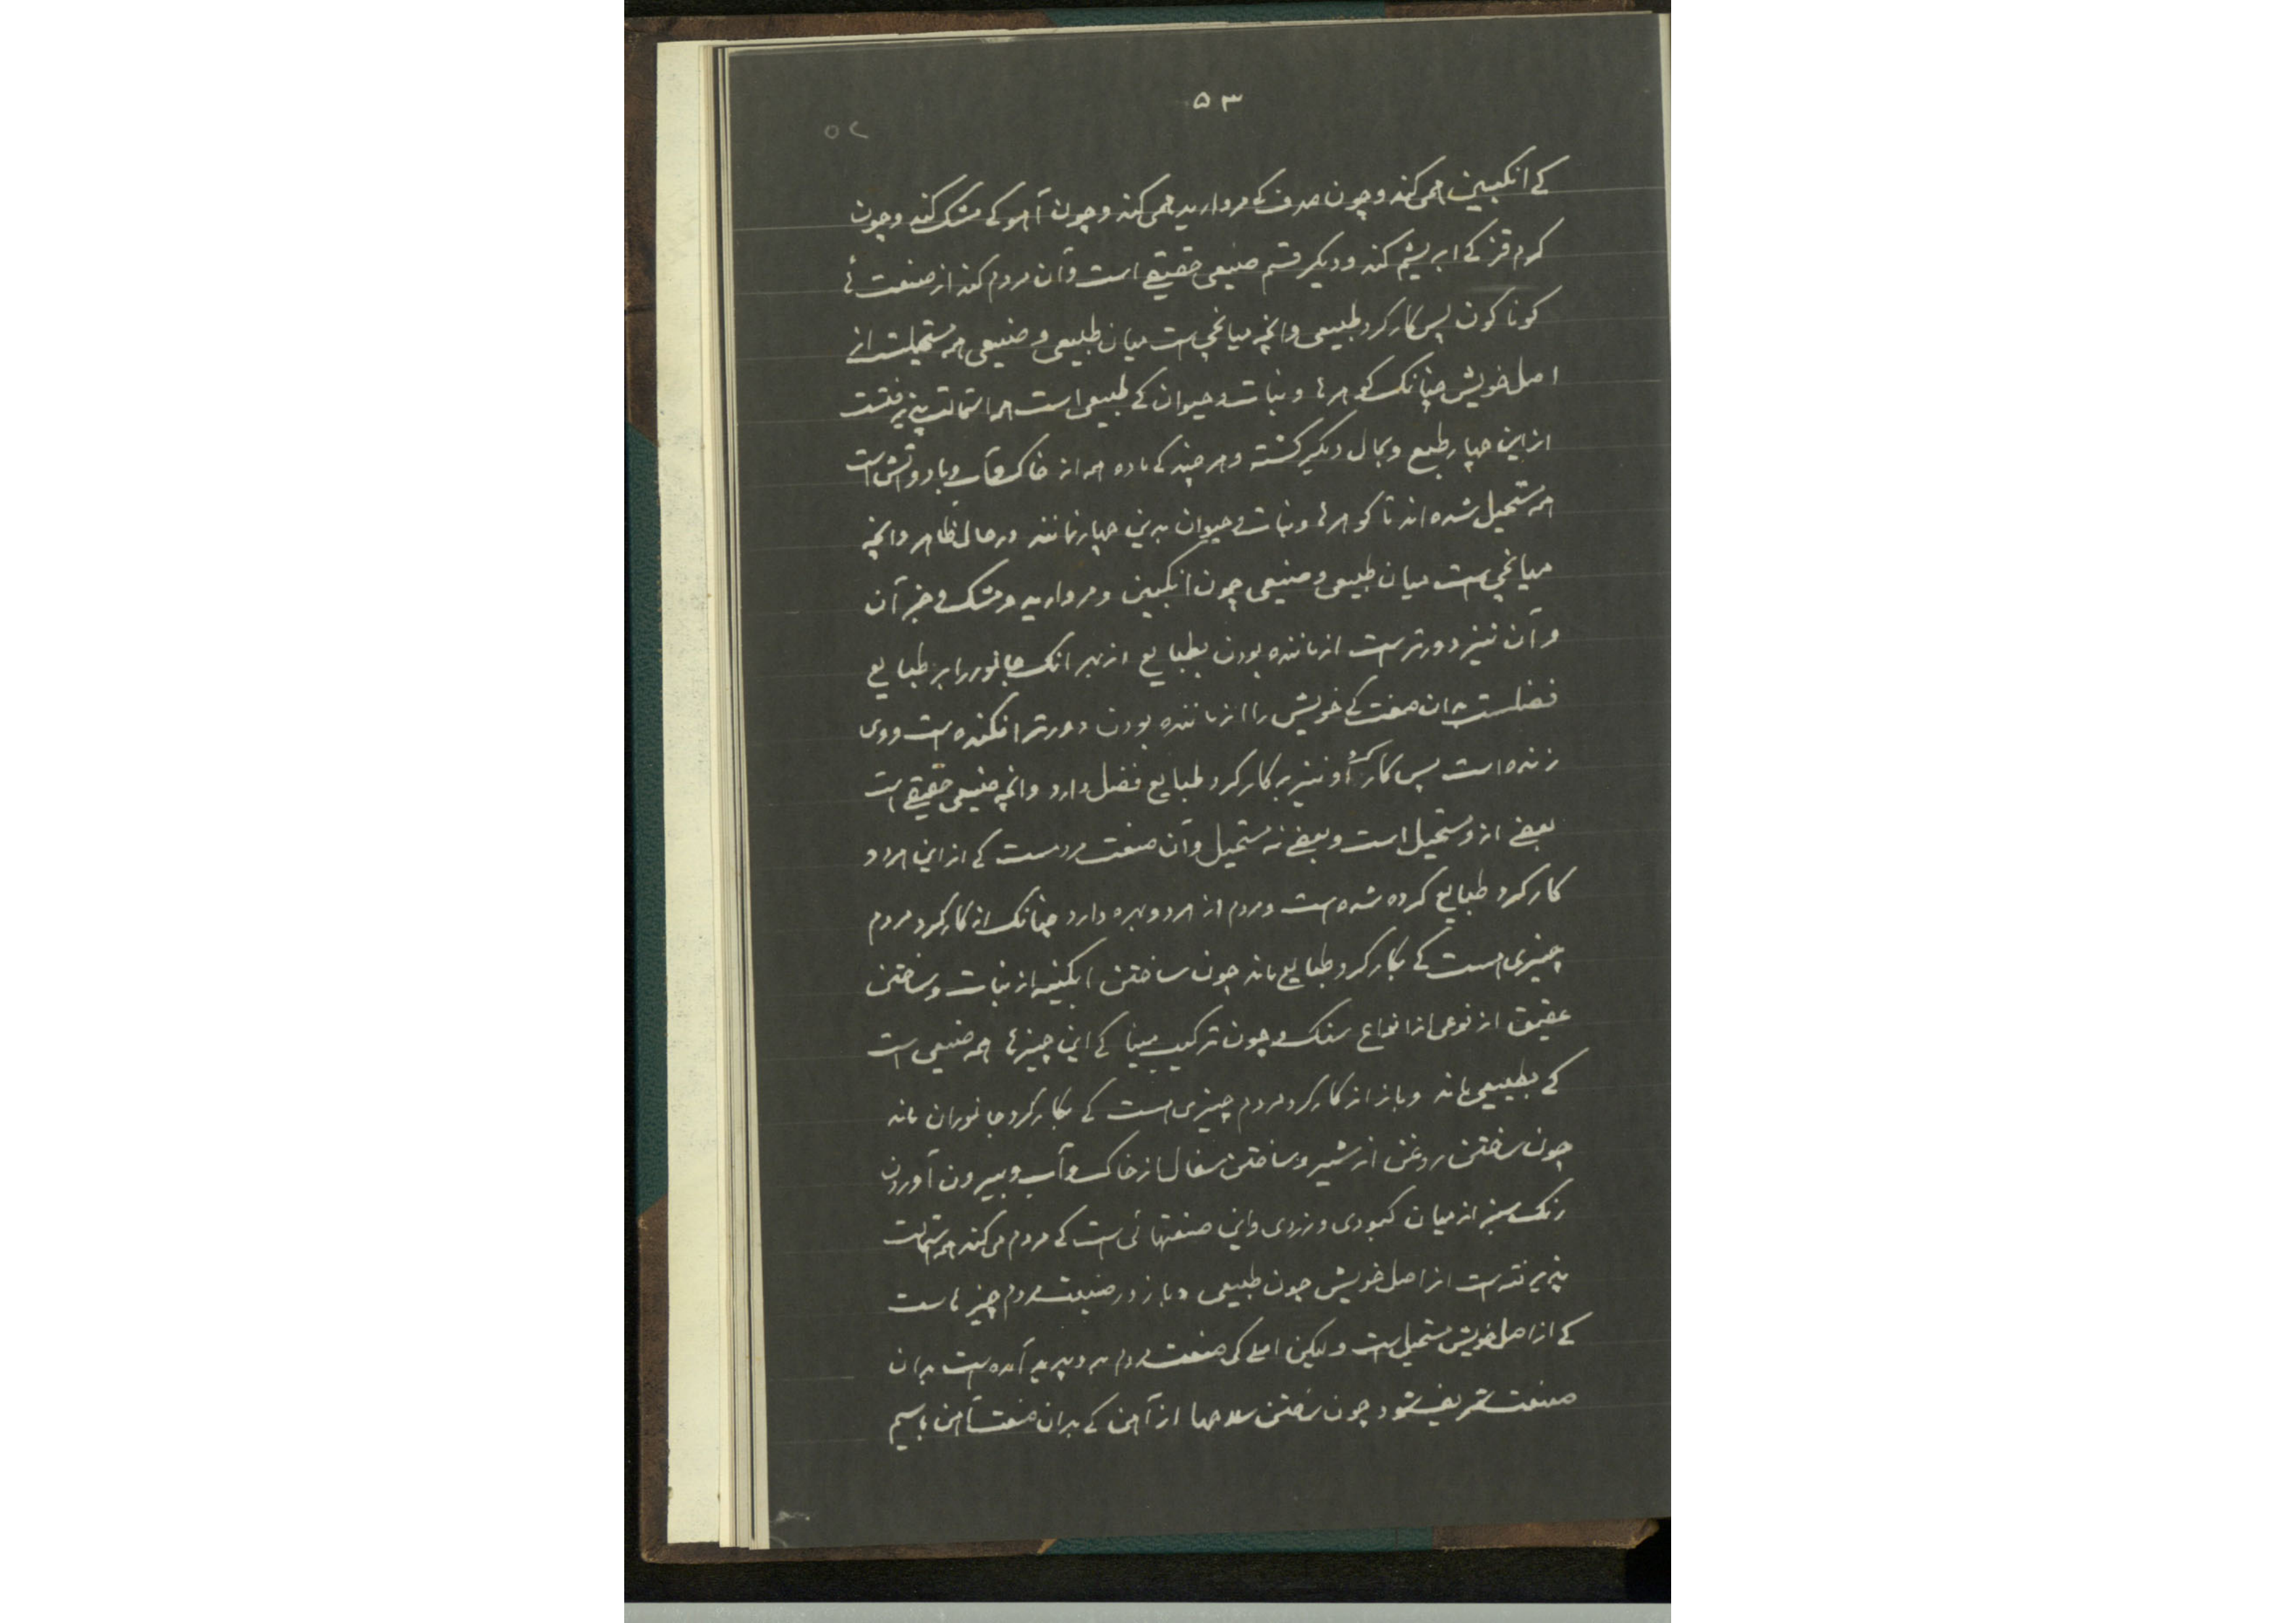 ۵۳
۵۲
کے انکبین همی کند و چون صدف کے مروارید همی کند و چون آهو کے مشک کند و چون
کرم قز کے ابریشم کند و دیکر قسم صنیعی حقیقے است و آن مردم کند از صنعت هٔا
کوناکون پس کارکرد طبیعی و انچه میانجی ست میان طبیعی و صنیعی همه مستحیلست از
اصل خویش چنانک کوهرها و نبات و حیوان کے طبیعی است همه استحالت پذیرفتست
از این چهار طبع و بحال دیکر کشته و هر چند کے ماده همه از خاک و آب و باد و آتش است
همه مستحیل شده اند تا کوهرها و نبات و حیوان بدین چهار نمانند در حال ظاهر و انچه
میانجی ست میان طبیعی و صنیعی چون انکبین و مروارید و مشک و جز آن
و آن نیز دورتر ست از ماننده بودن بطبایع از بهر انک جانور را بر طبایع
فضلست بدان صفت کے خویش را از ماننده بودن دورتر افکنده ست و وی
زنده است پس کارکرد او نیز بر کارکرد طبایع فضل دارد و انچه صنیعی حقیقے است
بعضے از و مستحیل است و بعضے نه مستحیل و آن صنعت مردمست کے از این هر دو
کارکرد طبایع کرده شده ست و مردم از هر دو بهره دارد چنانک از کارکرد مردم
چیزی هست کے بکارکرد طبایع ماند چون ساختن ابکینه از نبات و ساختن
عقیق از نوعی از انواع سنک و چون ترکیب مینا کے این چیزها همه صنیعی است
کے بطبیعی ماند و باز از کارکرد مردم چیزی هست کے بکارکرد جانوران ماند
چون ساختن روغن از شیر و ساختن سفال از خاک و آب و بیرون آوردن
رنک سبز از میان کبودی و زردی و این صنعتهائی ست کے مردم می کند همه استحالت
پذیرفته ست از اصل خویش چون طبیعی و باز در صنعت مردم چیزهاست
کے از اصل خویش مستحیل ست ولیکن اصلے کی صنعت مردم بر و پدید آمده ست بدان
صنعت شریف شود چون ساختن سلاحها از آهن کے بدان صنعت آهن باسیم